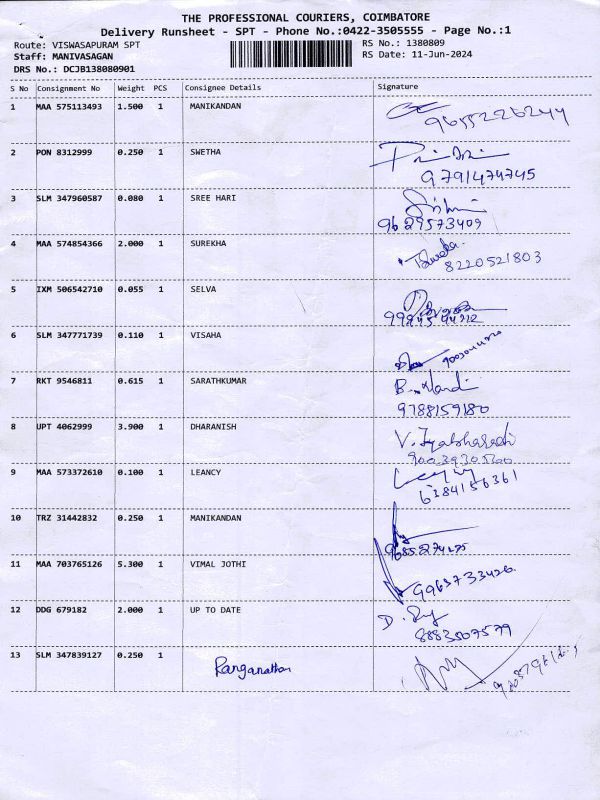 THE PROFESSIONAL COURIERS, COIMBATORE
Delivery Runsheet - SPT - Phone No.:0422-3505555 - Page No.:1
Route: VISWASAPURAM SPT
RS No.: 1380809
Staff: MANIVASAGAN
RS Date: 11-Jun-2024
DRS No.: DCJB138080901
S No Consignment No Weight PCS Consignee Details Signature
1 MAA 575113493 1.500 1 MANIKANDAN
9655226244
2 PON 8312999 0.250 1 SWETHA
9791474745
3 SLM 347960587 0.080 1 SREE HARI
9629573409
4 MAA 574854366 2.000 1 SUREKHA
8220521803
5 IXM 506542710 0.055 1 SELVA
6 SLM 347771739 0.110 1 VISAHA
7 RKT 9546811 0.615 1 SARATHKUMAR
B.
9788159180
8 UPT 4062999 3.900 1 DHARANISH
V.
9003930560
9 MAA 573372610 0.100 1 LEANCY
6384156361
10 TRZ 31442832 0.250 1 MANIKANDAN
11 MAA 703765126 5.300 1 VIMAL JOTHI
9963733426
12 DDG 679182 2.000 1 UP TO DATE
D.
8883507579
13 SLM 347839127 0.250 1 Ranganathan